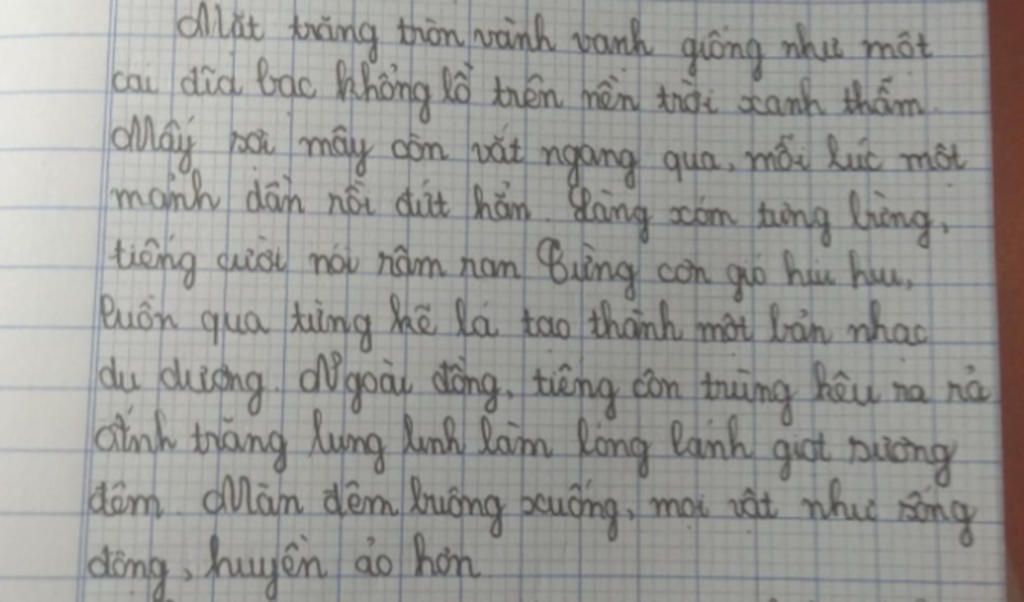 Mặt trăng tròn vành vạnh giống như một
cái dĩa bạc khổng lồ trên nền trời xanh thẳm.
Mấy sợi mây còn vắt ngang qua, mỗi lúc một
mảnh dần rồi đứt hẳn. Làng xóm tưng bừng,
tiếng cười nói râm ran. Từng cơn gió hiu hiu,
luồn qua từng kẽ lá tạo thành một bản nhạc
du dương. Ngoài đồng, tiếng côn trùng kêu ra rả
Ánh trăng lung linh làm lóng lánh giọt sương
đêm. Màn đêm buông xuống, mọi vật như sống
động, huyền ảo hơn